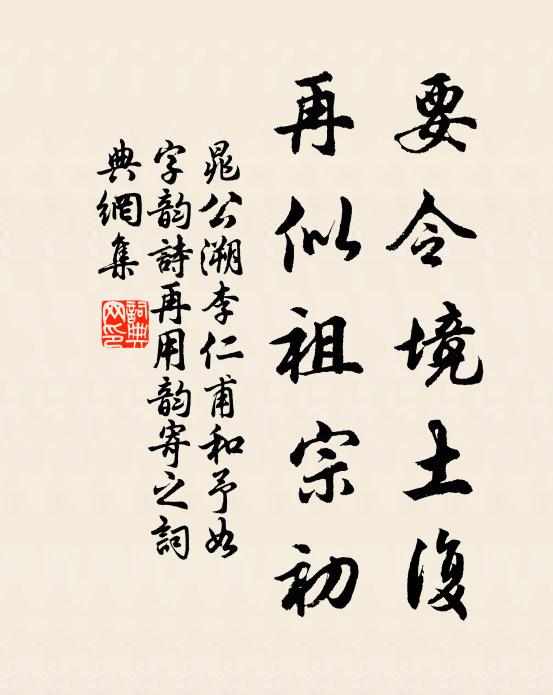 要令境土復
再似祖宗初
晁公溯李仁甫和予如
字韵詩再用韵寄之詞
典網集
詞典网印